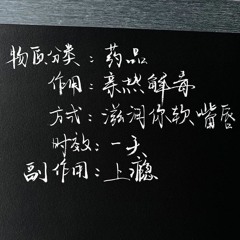 物区分类：药品
作用：亲热解毒
方式：滋润你软嘴唇
时效：一天
副作用：上瘾